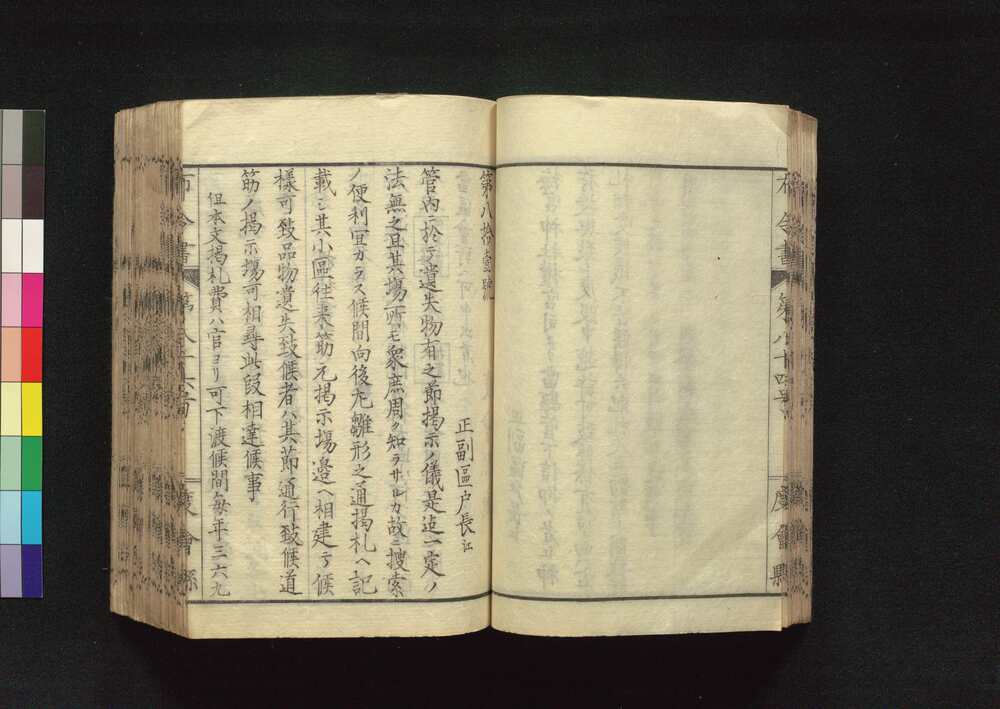 布令書 第八十四号 度會縣
第八拾壹號
正副區戸長江
管内ニ於テ遺失物有之節揭示ノ儀是迠一定ノ
法無之且其場所モ衆庶周ク知ラサルカ故ニ搜索
ノ便利宜カラス候間向後左雛形之通揭札ヘ記
載シ其小區往来筋元揭示場邉ヘ相建可候
樣可致品物遺失致候者ハ其節通行致候道
筋ノ揭示場可相尋此段相達候事
但本文揭札費ハ官ヨリ可下渡候間毎年三六九
布令書 第八十 度會縣